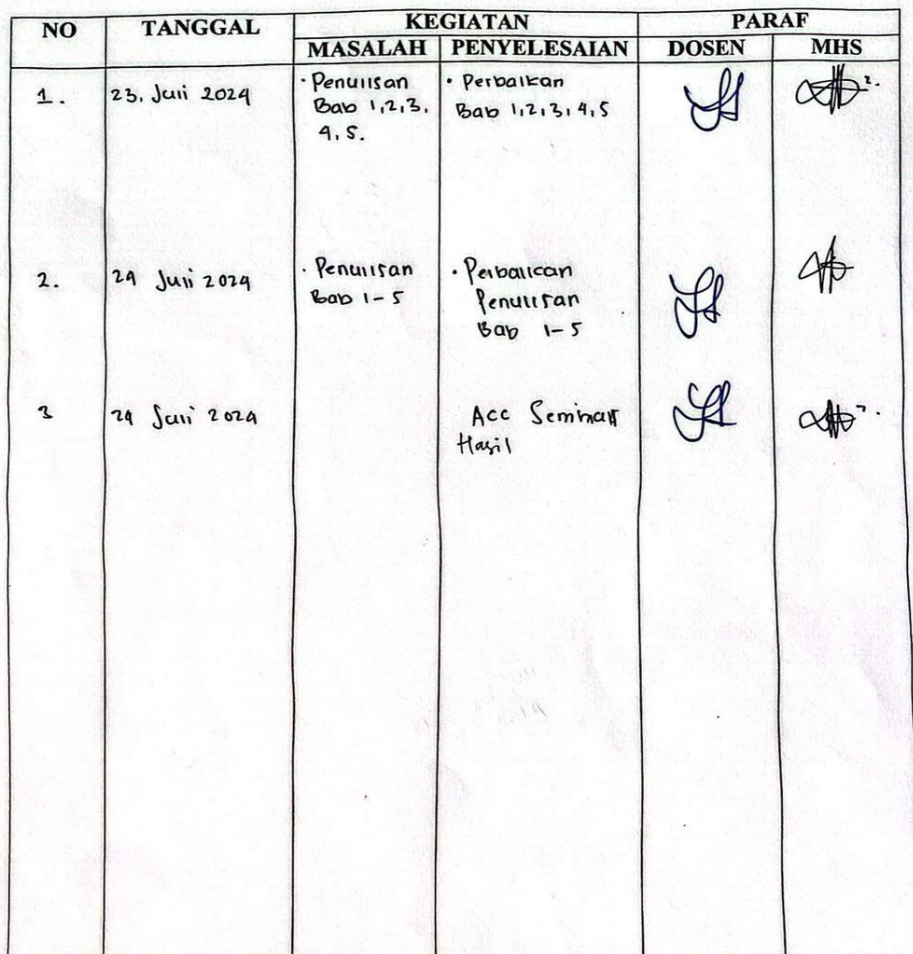 NO TANGGAL KEGIATAN PARAF
MASALAH PENYELESAIAN DOSEN MHS
1. 23, Juli 2024 · Penulisan · Perbaikan
Bab 1,2,3, Bab 1,2,3,4,5
4,5.
2. 24 Juli 2024 · Penulisan · Perbaikan
Bab 1-5 Penulisan
Bab 1-5
3 24 Juli 2024 Acc Seminar
Hasil